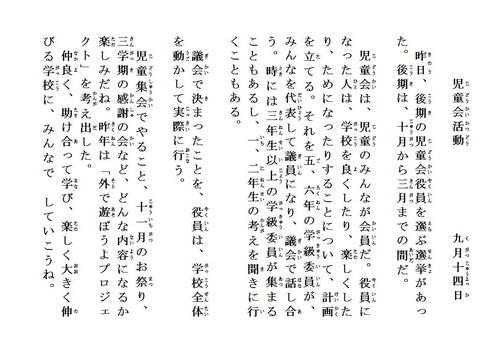 児童会活動
九月十四日
昨日、後期の児童会役員を選ぶ選挙があっ
た。後期は、十月から三月までの間だ。
児童会は、児童のみんなが会員だ。役員に
なった人は、学校を良くしたり、楽しくした
り、ためになったりすることについて、計画
を立てる。それを五、六年の学級委員が、
みんなを代表して議員になり、議会で話し合
う。時には三年生以上の学級委員が集まる
こともあるし、一、二年生の考えを聞きに行
くこともある。
議会で決まったことを、役員は、学校全体
を動かして実際に行う。
児童集会でやること、十一月のお祭り、
三学期の感謝の会など、どんな内容になるか
楽しみだね。昨年は「外で遊ぼうよプロジェ
クト」を考え出した。
仲良く、助け合って学び、楽しく大きく伸
びる学校に、みんなで していこうね。